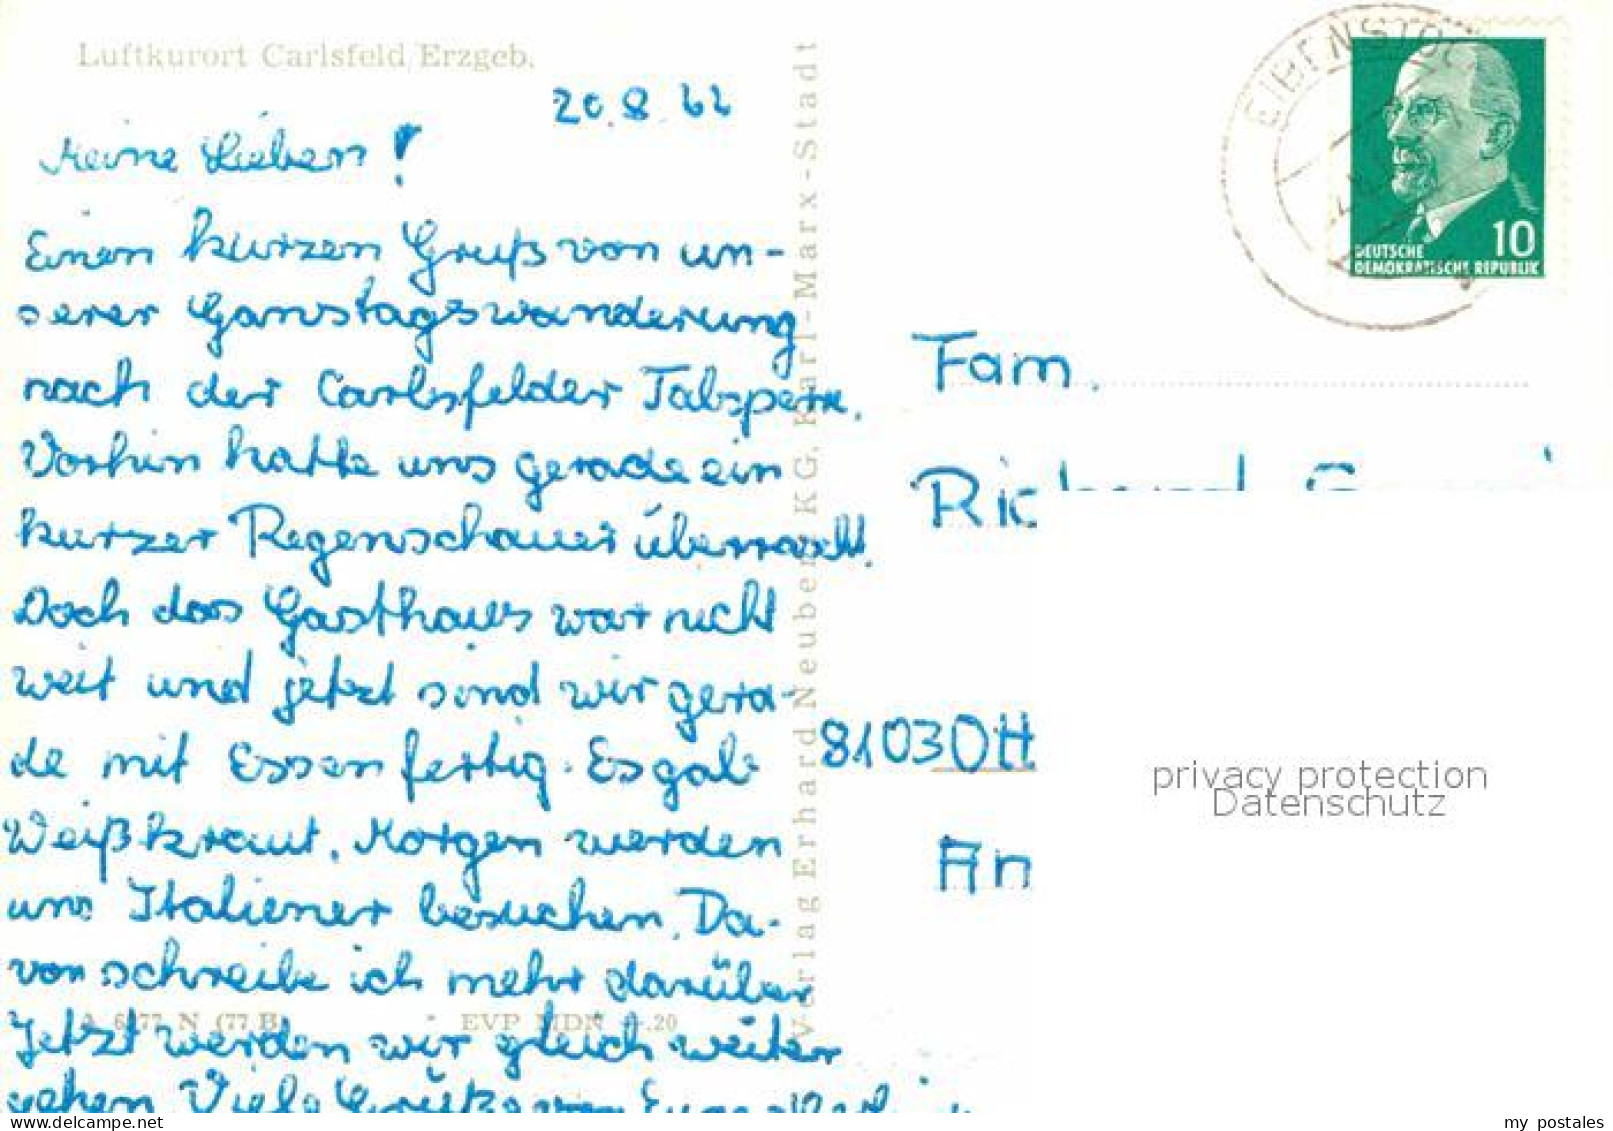 Luftkurort Carlsfeld/Erzgeb.
20.8.62
Meine Lieben!
Einen kurzen Gruß von un-
serer Ganstagswanderung
nach der Carlsfelder Talsperre.
Vorhin hatte uns gerade ein
kurzer Regenschauer überrascht.
Doch das Gasthaus war nicht
weit und jetzt sind wir gera-
de mit Essen fertig. Es gab
Weißkraut. Morgen werden
uns Italiener besuchen. Da-
von schreibe ich mehr darüber
Jetzt werden wir gleich weiter
gehen. Viele Grüße von
N (77 B) EVP MDN -.20
Verlag Erhard Neubert KG, Karl-Marx-Stadt
EIBENSTOCK
10
DEUTSCHE
DEMOKRATISCHE REPUBLIK
Fam.
8103 Ott
An
privacy protection
Datenschutz
my postales